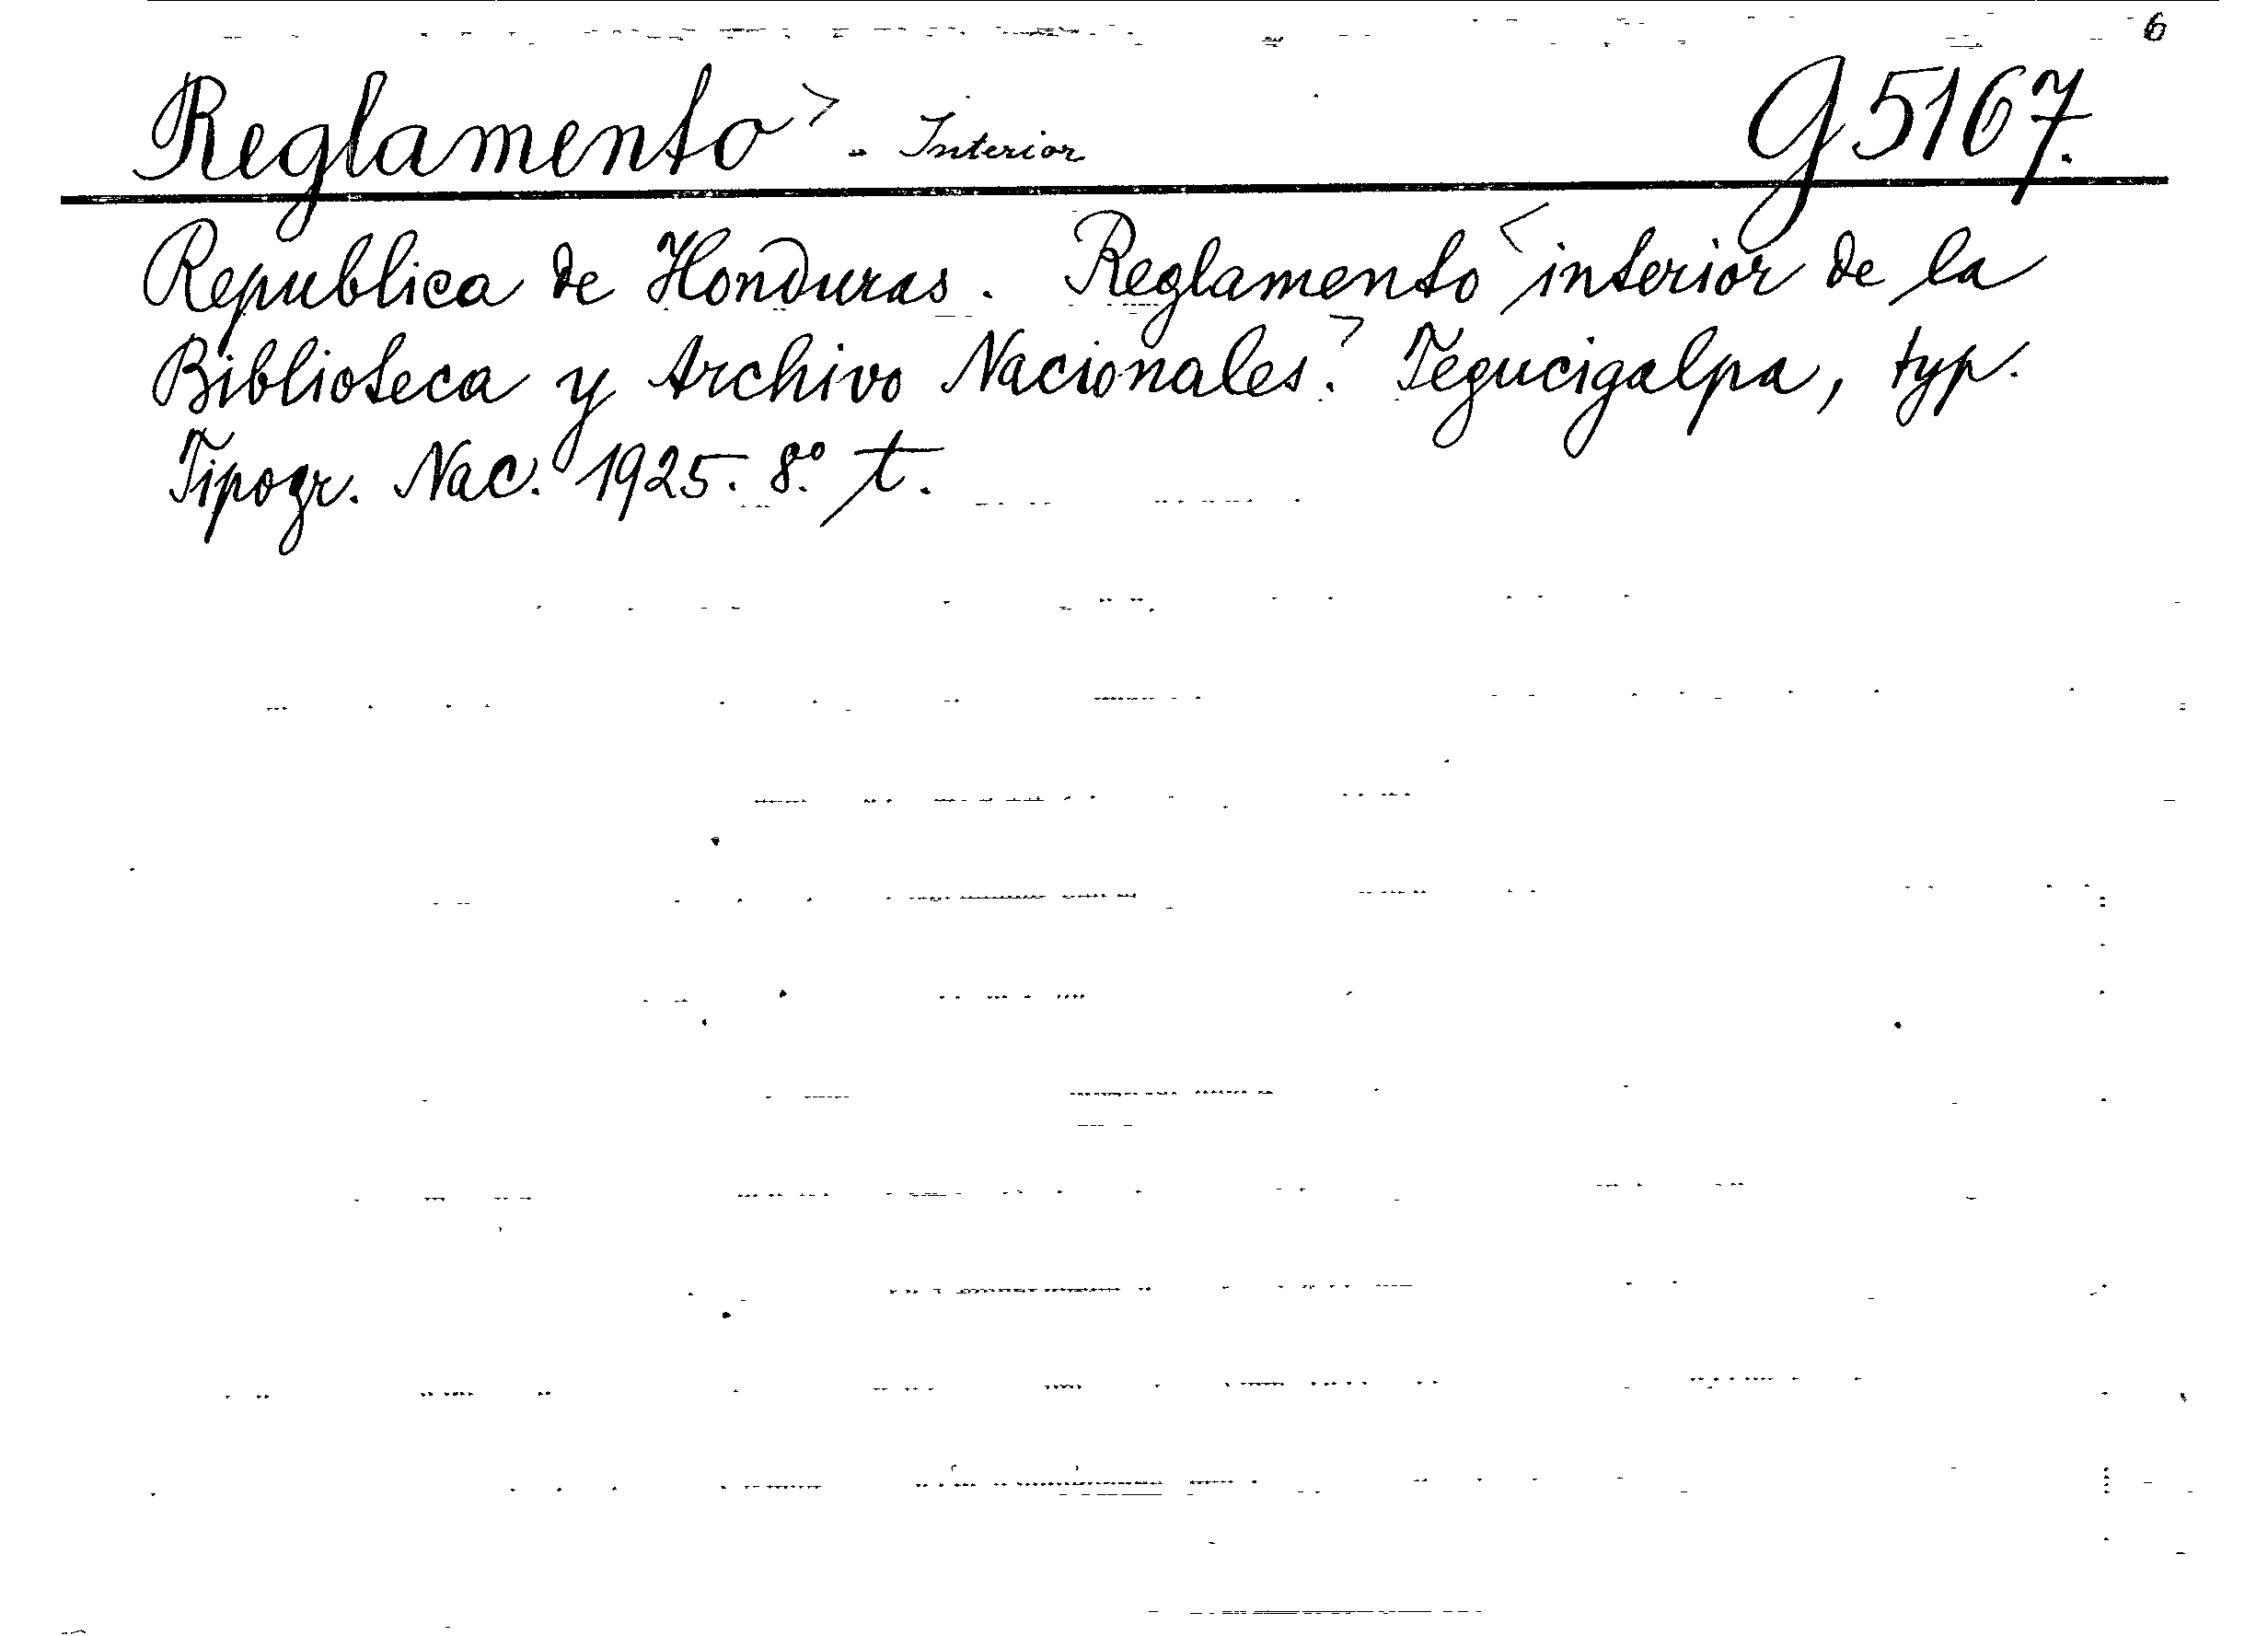 6
Reglamento> - Interior G 5167.
Republica de Honduras. Reglamento <interior de la
Biblioteca y Archivo Nacionales.> Tegucigalpa, typ.
Tipogr. Nac. 1925. 8.º t.